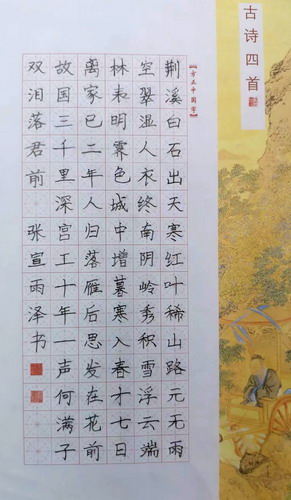 古诗四首
【方正中国字】
荆溪白石出天寒红叶稀山路元无雨
空翠湿人衣终南阴岭秀积雪浮云端
林表明霁色城中增暮寒入春才七日
离家已二年人归落雁后思发在花前
故国三千里深宫二十年一声何满子
双泪落君前 张宣雨泽书